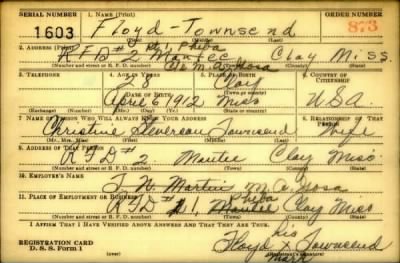 SERIAL NUMBER 1. NAME (Print) ORDER NUMBER
1603 Floyd - Townsend 873
R.1, Pheba
2. ADDRESS (Print)
RFD #2 Mantee Clay Miss
(Number and street or R. F. D. number) (Town) (County) (State)
3. TELEPHONE 4. AGE IN YEARS 5. PLACE OF BIRTH 6. COUNTRY OF CITIZENSHIP
28 Clay
DATE OF BIRTH
April 6 1912 Miss USA
(Exchange) (Number) (Mo.) (Day) (Yr.) (State or country)
7. NAME OF PERSON WHO WILL ALWAYS KNOW YOUR ADDRESS 8. RELATIONSHIP OF THAT PERSON
Christine Townsend Wife
9. ADDRESS OF THAT PERSON
RFD #2. Mantee Clay Miss.
(Number and street or R. F. D. number) (Town) (County) (State)
10. EMPLOYER'S NAME
Martin
11. PLACE OF EMPLOYMENT OR BUSINESS Pheba
RFD #1, Mantee Clay Miss
(Number and street or R. F. D. number) (Town) (County) (State)
I AFFIRM THAT I HAVE VERIFIED ABOVE ANSWERS AND THAT THEY ARE TRUE.
his
REGISTRATION CARD Floyd X Townsend
D. S. S. Form 1 mark